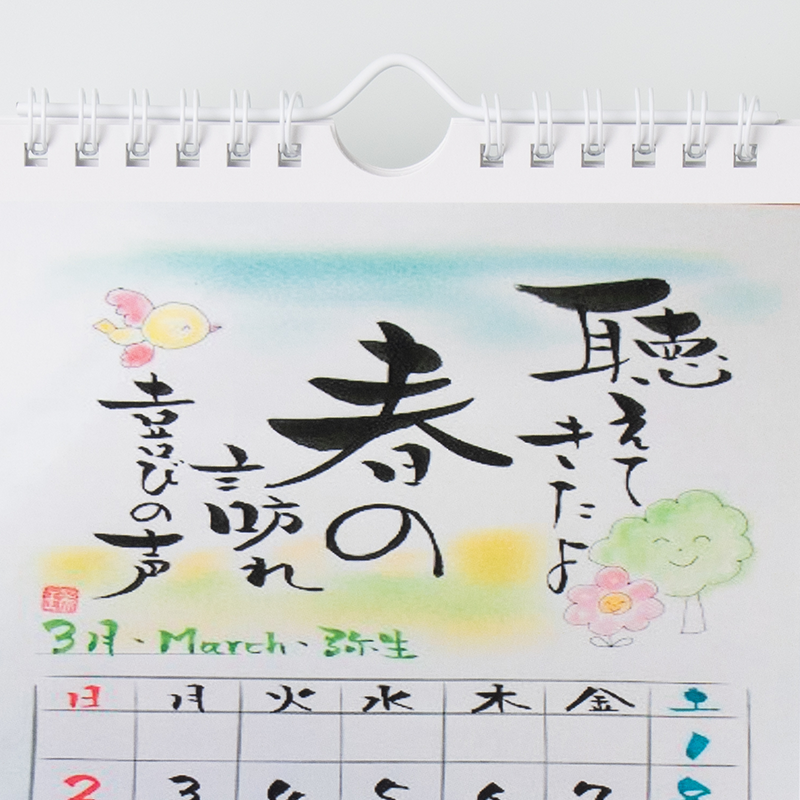 聴えて
きたよ
春の
訪れ
喜びの声
3月・March・弥生
日 月 火 水 木 金 土
1
2 3 4 5 6 7 8